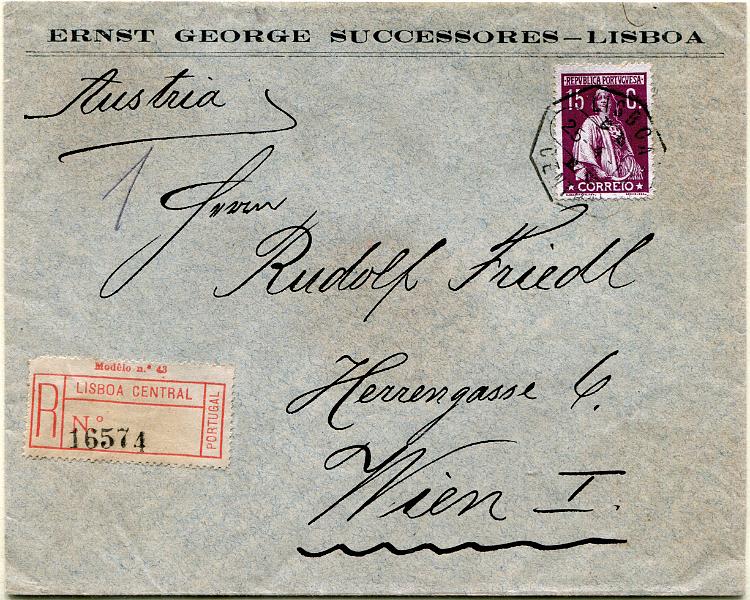 ERNST GEORGE SUCCESSORES–LISBOA
Austria
REPUBLICA PORTUGUESA
15 C.
CORREIO
LISBOA
1
Herrn
Rudolf Friedl
Modêlo n.º 43
R
LISBOA CENTRAL
N.º
16574
PORTUGAL
Herrengasse 6.
Wien I.